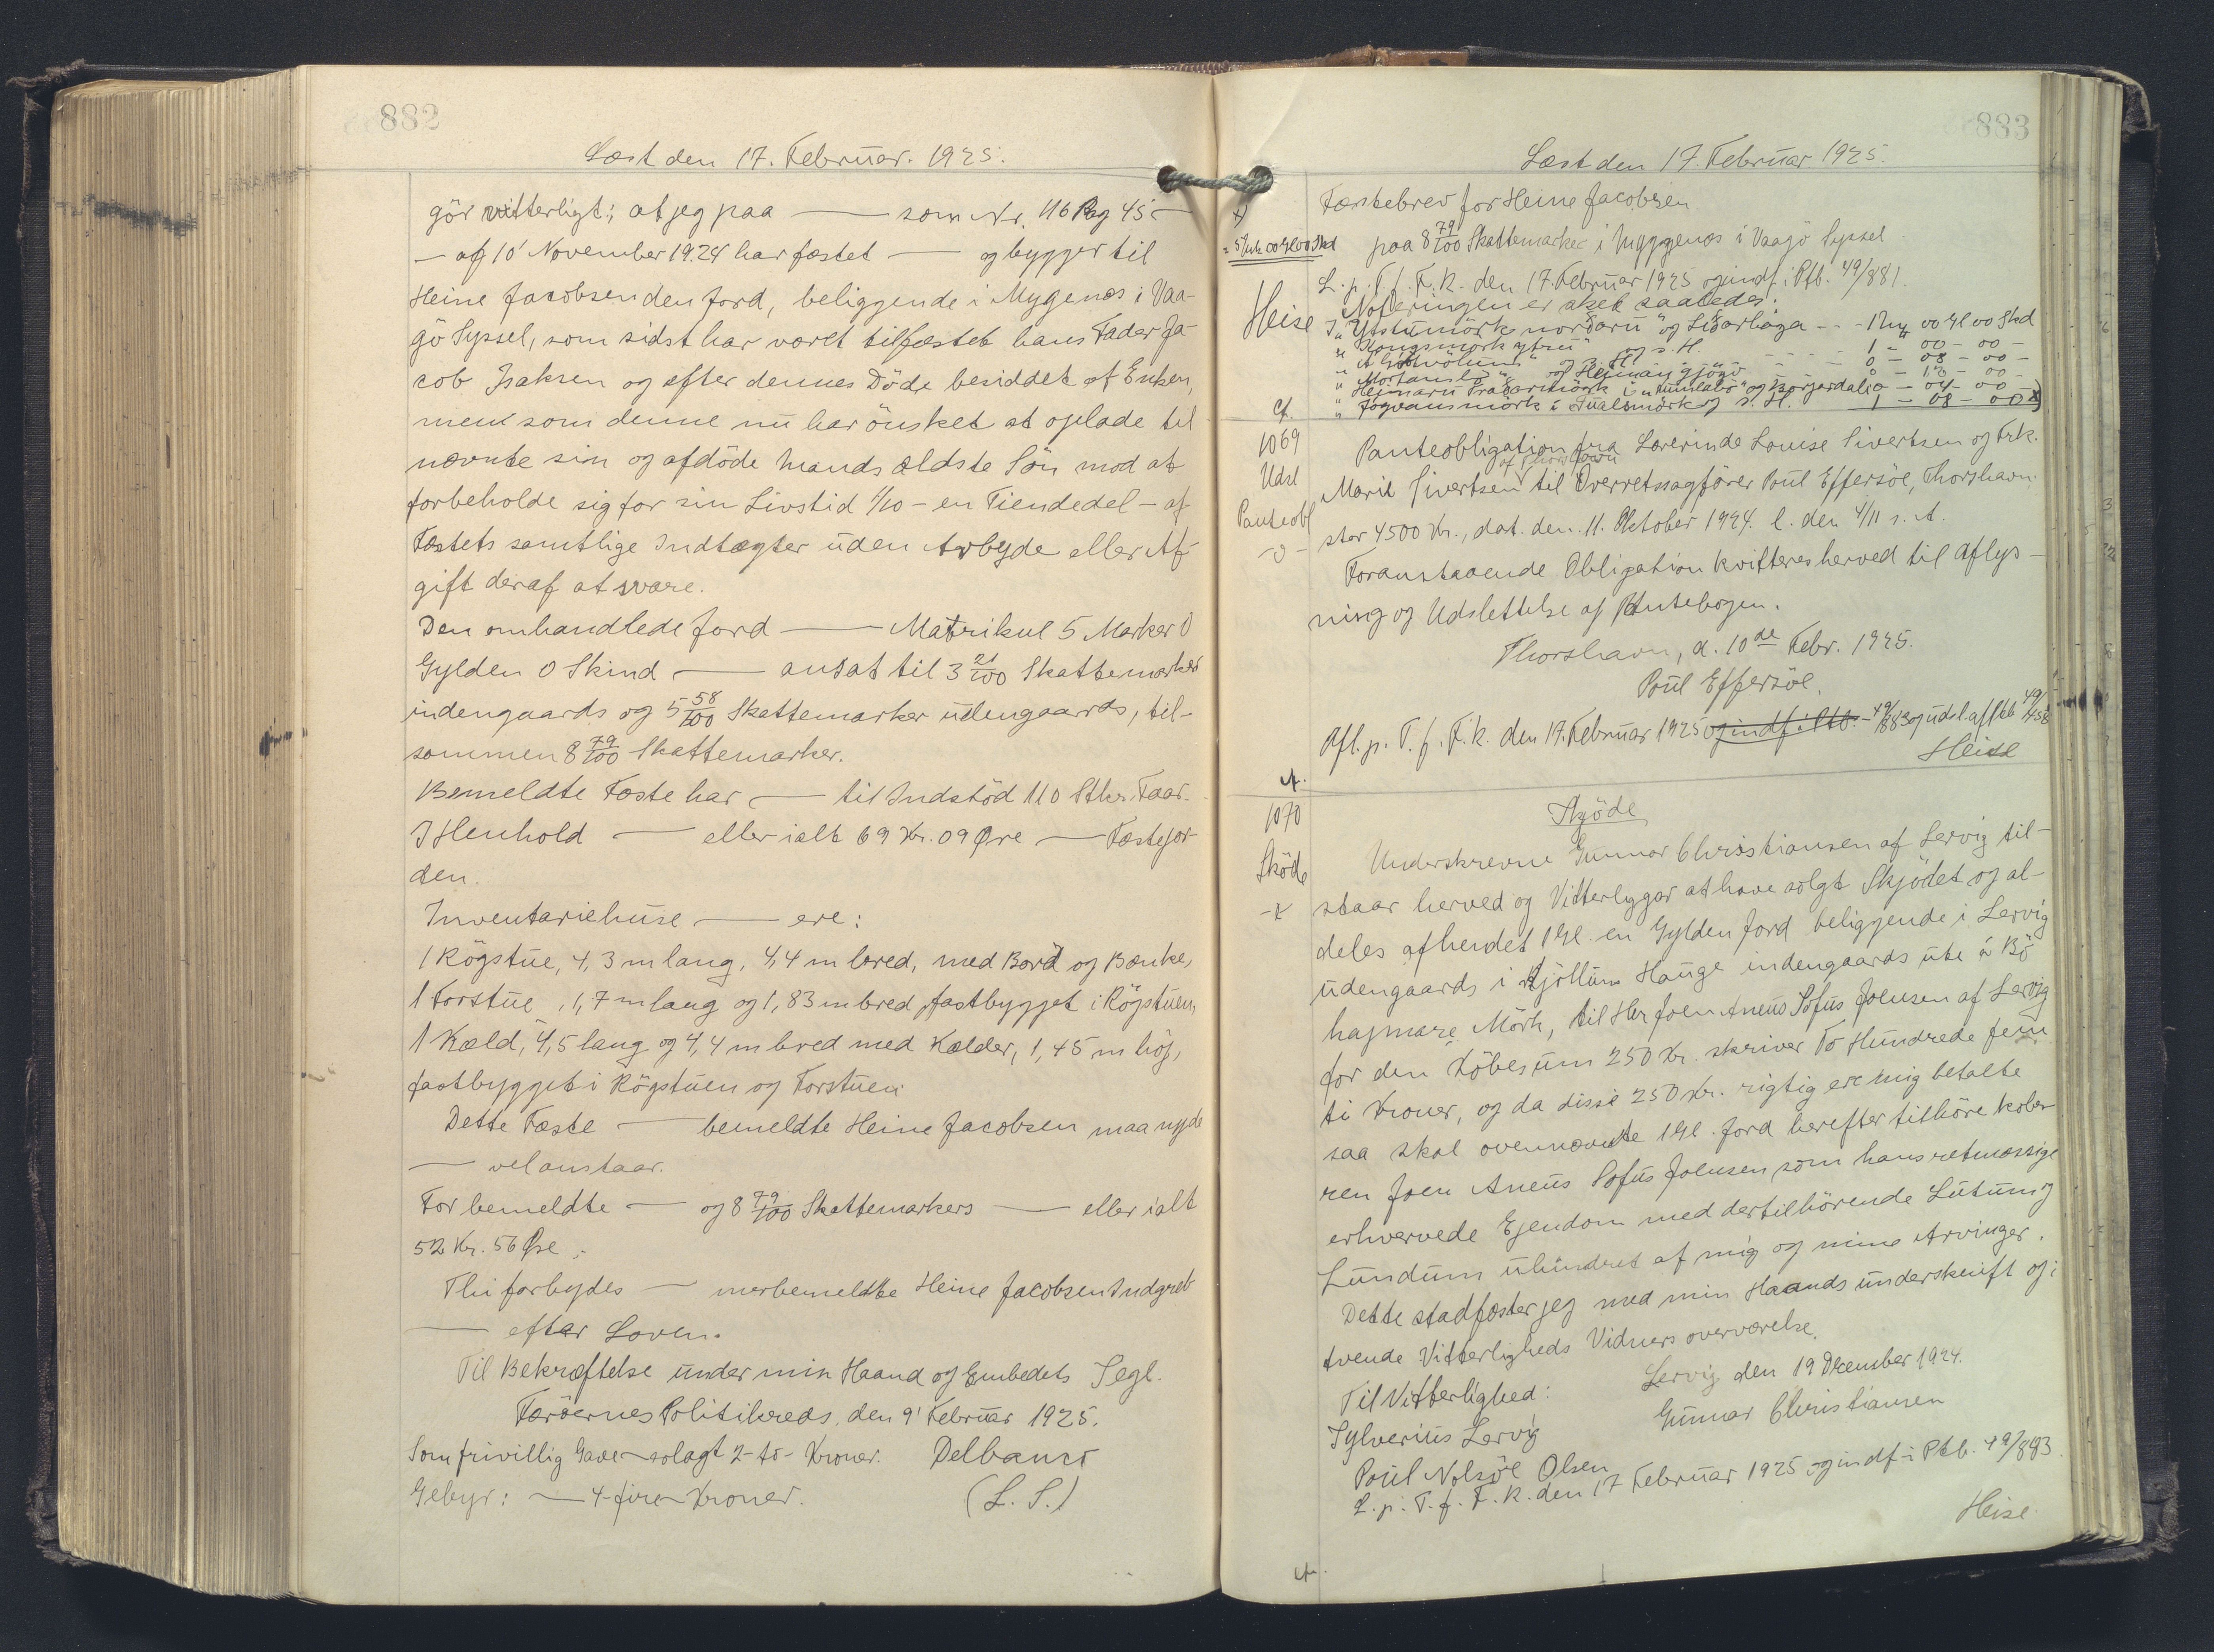 882
Læst den 17. Februar. 1925.
gör vitterligt; at jeg paa — som Nr. 116 Pag 45 —
— af 10' November 1924 har fæstet — og bygger til
Heine Jacobsen den Jord, beliggende i Mygenæs i Vaa-
gö Syssel, som sidst har været tilfæstet hans Fader Ja-
cob Isaksen og efter dennes Döde besiddet af Enken,
men som denne nu har önsket at oplade til
nævnte sin og afdöde Mands ældste Sön mod at
forbeholde sig for sin Livstid 1/10 - en Tiendedel - af
Fæstets samtlige Indtægter uden Arbejde eller Af-
gift deraf at svare.
Den omhandlede Jord — Matrikul 5 Marker 0
Gylden 0 Skind — ansat til 3 21/100 Skattemarker
indengaards og 5 58/100 Skattemarker udengaards, til-
sammen 8 79/100 Skattemarker.
Bemeldte Fæste har — til Indstöd 110 Stkr. Faar.
I Henhold — eller ialt 69 Kr. 09 Øre — Fæstejor-
den.
Inventariehuse — ere:
1 Rögstue, 4,3 m lang, 4,4 m bred, med Bord og Bænke,
1 Forstue, 1,7 m lang og 1,83 m bred, fastbygget i Rögstuen,
1 Kæld, 4,5 lang og 4,4 m bred med Kælder, 1,45 m höj,
fastbygget i Rögstuen og Forstuen.
Dette Fæste — bemeldte Heine Jacobsen maa nyde
— vel anstaar.
For bemeldte — og 8 79/100 Skattemarkers — eller ialt
52 Kr. 56 Øre.
Thi forbydes — merbemeldte Heine Jacobsen Indgreb
— efter Loven.
Til Bekræftelse under min Haand og Embedets Segl.
Færöernes Politikreds, den 9' Februar 1925.
Som frivillig Gave erlagt 2 - to - Kroner. Delbanco
Gebyr: — 4 - fire - Kroner. (L. S.)
883
Læst den 17. Februar 1925.
Fæstebrev for Heine Jacobsen
x)
= 5 Mk 00 Gl 00 Skd paa 8 79/100 Skattemarker i Myggenæs i Vaagö Syssel
L. p. T. f. F. R. den 17. Februar 1925 og indf. i Ptb. 49/881.
Heise Noteringen er sket saaledes:
I "Ytstumörk nordaru" og Lidarhaga - - - 1 Mk 00 Gl 00 Skd
" Kongsmörk ytru" og s. H. 1 - 00 - 00 -
og s. H. 0 - 08 - 00 -
og Heiman gjögv 0 - 10 - 00 -
" Heimaru Tradarmörk i og Borgardali 0 - 04 - 00 -
" Jógvansmörk i Tualsmörk og s. H. 1 - 08 - 00 x)
Cf.
1069
Udsl
Panteobl
-0-
Panteobligation fra Lærerinde Louise Sivertsen og Frk.
af Thorshavn
Marie Sivertsen til Overretssagförer Poul Effersöe, Thorshavn
stor 4500 Kr., dat. den 11. Oktober 1924. l. den 4/11 s. A.
Foranstaaende Obligation kvitteres herved til Aflys-
ning og Udslettelse af Pantebogen.
Thorshavn, d. 10de Febr. 1925.
Poul Effersöe.
Afl. p. T. f. F. R. den 17. Februar 1925 og indf. i Ptb. - 49/883 og udsl. af Ptb 49/458
Heise
Cf.
1070
Sköde
-x
Skjöde
Underskrevne Gunnar Christiansen af Lervig til-
staar herved og Vitterlygør at have solgt Skjödet og al-
deles afhendet 1 Gl. en Gylden Jord beliggende i Lervig
udengaards i Kjöllum Hauge indengaards ute á Bö
hagmare Mörk, til Her Joen Aneus Sofus Joensen af Lervig
for den Köbesum 250 Kr. skriver To Hundrede fem
ti Kroner, og da disse 250 Kr. rigtig ere mig betalte
saa skal ovennævnte 1 Gl. Jord herefter tilhöre Köbe-
ren Joen Aneus Sofus Joensen som hans retmæssige
erhvervede Ejendom med dertilhörende Lutum og
Lundum uhindret af mig og mine Arvinger.
Dette stadfæster jeg med min Haands underskrift og i
tvende Vitterligheds Vidners overværelse.
Lervig den 19 December 1924.
Til Vitterlighed: Gunnar Christiansen
Sylverius Lervig
Poul Nolsöe Olsen
L. p. T. f. F. R. den 17 Februar 1925 og indf. i Ptb. 49/883.
Heise
Cf.